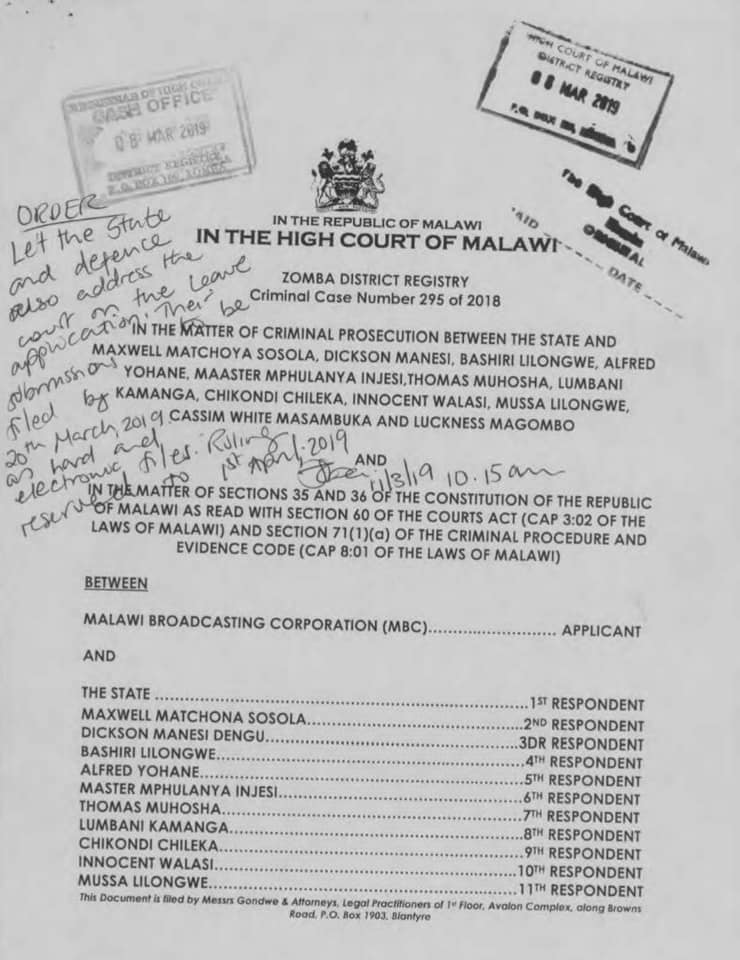 HIGH COURT OF MALAWI
DISTRICT REGISTRY
08 MAR 2019
P.O. BOX
CASH OFFICE
08 MAR 2019
DISTRICT REGISTRY
P.O. BOX
The High Court of Malawi
ORIGINAL
DATE
ORDER
Let the State
and defence
also address the
court on the leave
application. There
be
submissions
filed by
20th March, 2019
as hard and
electronic files. Ruling
reserved to 1st April, 2019
11/3/19 10.15 am
IN THE REPUBLIC OF MALAWI
IN THE HIGH COURT OF MALAWI
ZOMBA DISTRICT REGISTRY
Criminal Case Number 295 of 2018
IN THE MATTER OF CRIMINAL PROSECUTION BETWEEN THE STATE AND
MAXWELL MATCHOYA SOSOLA, DICKSON MANESI, BASHIRI LILONGWE, ALFRED
YOHANE, MAASTER MPHULANYA INJESI,THOMAS MUHOSHA, LUMBANI
KAMANGA, CHIKONDI CHILEKA, INNOCENT WALASI, MUSSA LILONGWE,
CASSIM WHITE MASAMBUKA AND LUCKNESS MAGOMBO
AND
IN THE MATTER OF SECTIONS 35 AND 36 OF THE CONSTITUTION OF THE REPUBLIC
OF MALAWI AS READ WITH SECTION 60 OF THE COURTS ACT (CAP 3:02 OF THE
LAWS OF MALAWI) AND SECTION 71(1)(a) OF THE CRIMINAL PROCEDURE AND
EVIDENCE CODE (CAP 8:01 OF THE LAWS OF MALAWI)
BETWEEN
MALAWI BROADCASTING CORPORATION (MBC)............................ APPLICANT
AND
THE STATE ..................................................................1ST RESPONDENT
MAXWELL MATCHONA SOSOLA.......................................2ND RESPONDENT
DICKSON MANESI DENGU.............................................3DR RESPONDENT
BASHIRI LILONGWE......................................................4TH RESPONDENT
ALFRED YOHANE.........................................................5TH RESPONDENT
MASTER MPHULANYA INJESI...........................................6TH RESPONDENT
THOMAS MUHOSHA......................................................7TH RESPONDENT
LUMBANI KAMANGA....................................................8TH RESPONDENT
CHIKONDI CHILEKA......................................................9TH RESPONDENT
INNOCENT WALASI......................................................10TH RESPONDENT
MUSSA LILONGWE.......................................................11TH RESPONDENT
This Document is filed by Messrs Gondwe & Attorneys, Legal Practitioners of 1st Floor, Avalon Complex, along Browns
Road, P.O. Box 1903, Blantyre